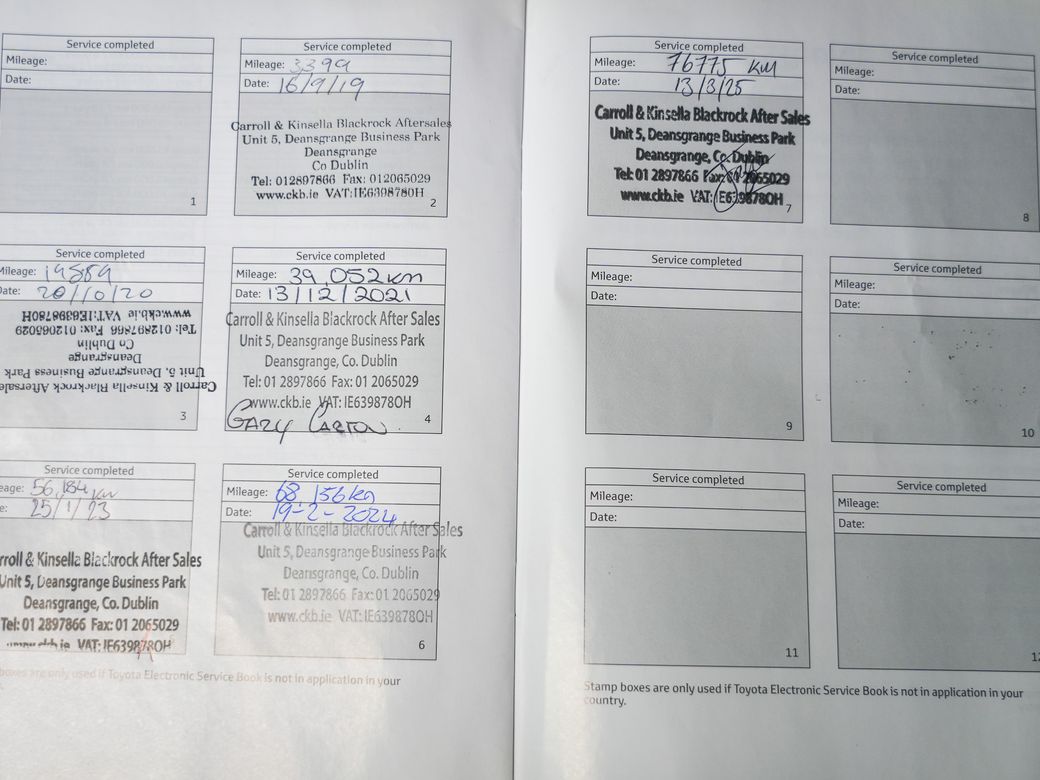 Service completed
Mileage:
Date:
1
Service completed
Mileage: 3399
Date: 16/9/19
Carroll & Kinsella Blackrock Aftersales
Unit 5, Deansgrange Business Park
Deansgrange
Co Dublin
Tel: 012897866 Fax: 012065029
www.ckb.ie VAT:IE6398780H
2
Service completed
Mileage: 19589
Date: 20/10/20
Carroll & Kinsella Blackrock Aftersale
Unit 5, Deansgrange Business Park
Deansgrange
Co Dublin
Tel: 012897866 Fax: 012065029
www.ckb.ie VAT:IE6398780H
3
Service completed
Mileage: 39,052km
Date: 13/12/2021
Carroll & Kinsella Blackrock After Sales
Unit 5, Deansgrange Business Park
Deansgrange, Co. Dublin
Tel: 01 2897866 Fax: 01 2065029
www.ckb.ie VAT: IE6398780H
GARY
4
Service completed
eage: 56,184 km
e: 25/1/23
rroll & Kinsella Blackrock After Sales
Unit 5, Deansgrange Business Park
Deansgrange, Co. Dublin
Tel: 01 2897866 Fax: 01 2065029
VAT: IE6398780H
Service completed
Mileage: 68,156km
Date: 19-2-2024
Carroll & Kinsella Blackrock After Sales
Unit 5, Deansgrange Business Park
Deansgrange, Co. Dublin
Tel: 01 2897866 Fax: 01 2065029
www.ckb.ie VAT: IE6398780H
6
boxes are only used if Toyota Electronic Service Book is not in application in your
Service completed
Mileage: 76775 KM
Date: 13/3/25
Carroll & Kinsella Blackrock After Sales
Unit 5, Deansgrange Business Park
Deansgrange, Co. Dublin
Tel: 01 2897866 Fax: 01 2065029
www.ckb.ie VAT: IE6398780H
7
Service completed
Mileage:
Date:
8
Service completed
Mileage:
Date:
9
Service completed
Mileage:
Date:
10
Service completed
Mileage:
Date:
11
Service completed
Mileage:
Date:
12
Stamp boxes are only used if Toyota Electronic Service Book is not in application in your
country.